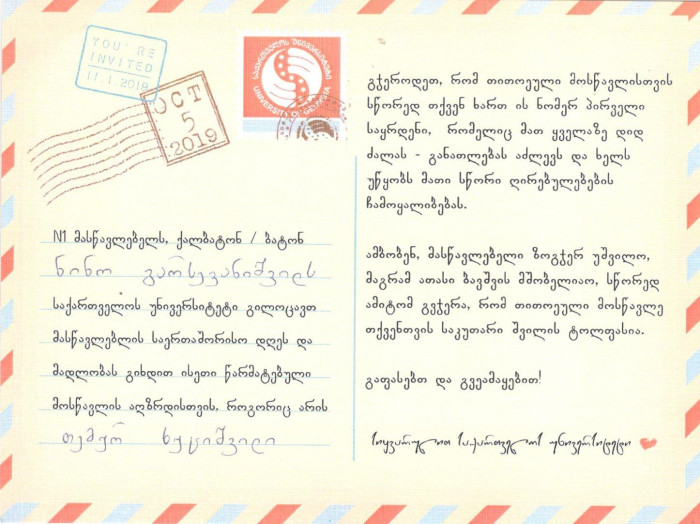 YOU'RE
INVITED
11.1.2018
OCT
5
2019
საქართველოს უნივერსიტეტი
UNIVERSITY OF GEORGIA
N1 მასწავლებელს, ქალბატონ / ბატონ
ნინო გარსევანიშვილს
საქართველოს უნივერსიტეტი გილოცავთ
მასწავლებლის საერთაშორისო დღეს და
მადლობას გიხდით ისეთი წარმატებული
მოსწავლის აღზრდისთვის, როგორიც არის
თემურ ხქციშვილი
გჭეროდეთ, რომ თითოეული მოსწავლისთვის
სწორედ თქვენ ხართ ის ნომერ პირველი
საყრდენი, რომელიც მათ ყველაზე დიდ
ძალას - განათლებას აძლევს და ხელს
უწყობს მათი სწორი ღირებულებების
ჩამოყალიბებას.
ამბობენ, მასწავლებელი ზოგჯერ უშვილო,
მაგრამ ათასი ბავშვის მშობელიაო, სწორედ
ამიტომ გვჭერა, რომ თითოეული მოსწავლე
თქვენთვის საკუთარი შვილის ტოლფასია.
გაფასებთ და გვეამაყებით!
სიყვარულით საქართველოს უნივერსიტეტი